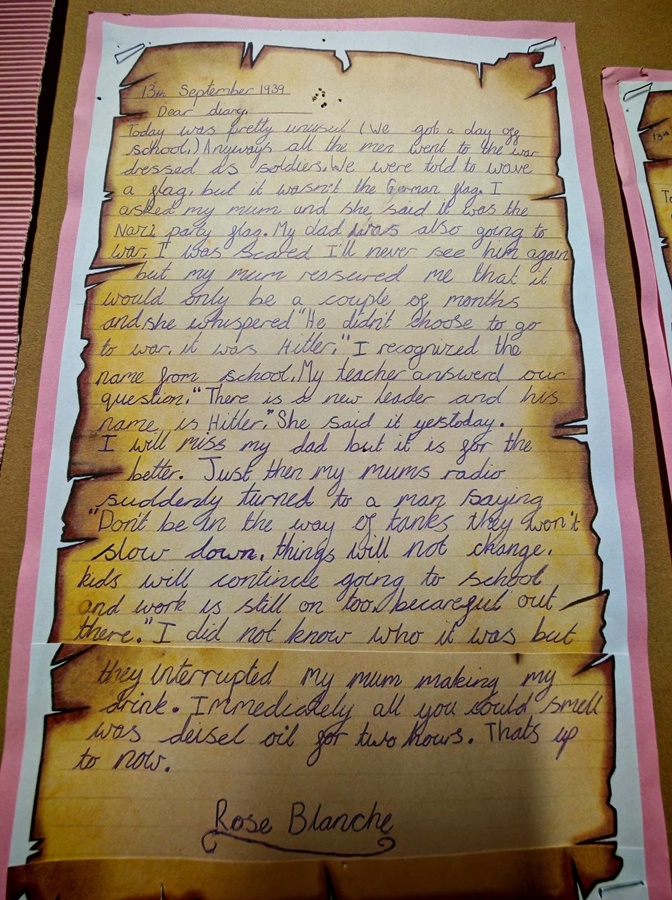 13th September 1939
Dear diary,
Today was pretty unusual (We got a day of
school.) Anyways all the men went to the war
dressed as soldiers. We were told to wave
a flag, but it wasn't the German flag. I
asked my mum and she said it was the
Nazi party flag. My dad was also going to
war. I was scared I'll never see him again
but my mum ressured me that it
would only be a couple of months
and she whispered "He didn't choose to go
to war, it was Hitler." I recognized the
name from school. My teacher answerd our
question. "There is a new leader and his
name is Hitler." She said it yerstoday.
I will miss my dad but it is for the
better. Just then my mums radio
suddenly turned to a man saying
"Dont be in the way of tanks they won't
slow down. things will not change.
kids will continue going to school
and work is still on too. becareful out
there." I did not know who it was but
they interrupted my mum making my
drink. Immediately all you could smell
was deisel oil for two hours. Thats up
to now.
Rose Blanche
13th